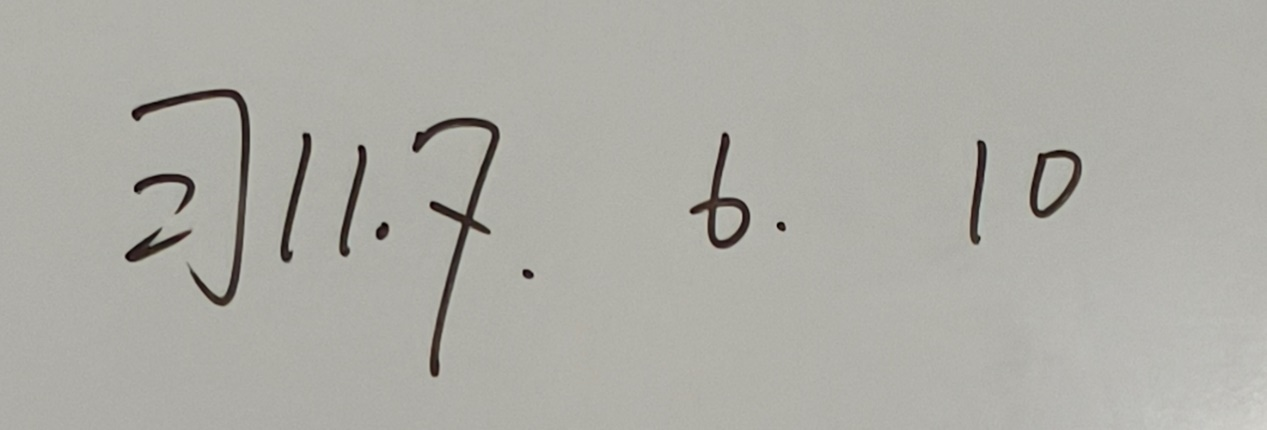 习11.7. 6. 10